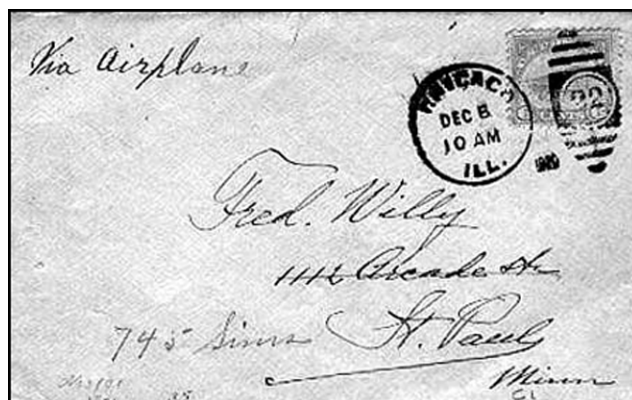 Via Airplane
CHICAGO
DEC 6
10 AM
ILL.
Fred. Willy
1112 Arcade St
745 Sims St. Paul
Minn
C1